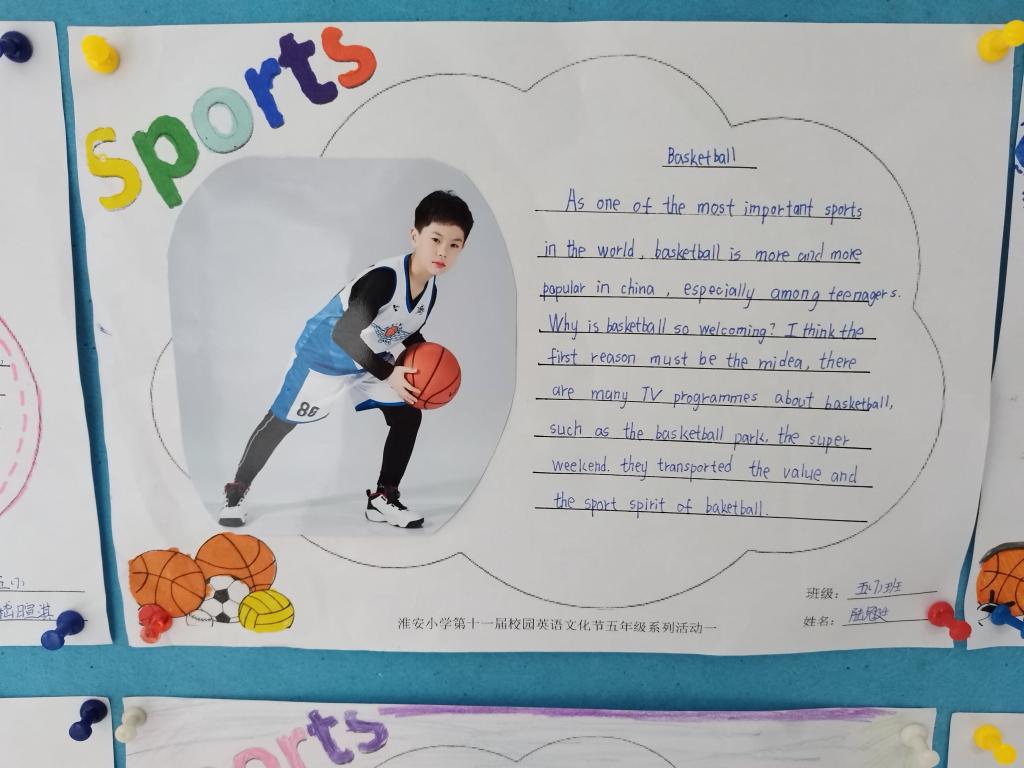 sports
Basketball
As one of the most important sports
in the world, basketball is more and more
popular in china, especially among teenagers.
Why is basketball so welcoming? I think the
first reason must be the midea, there
are many TV programmes about basketball,
such as the basketball park. the super
weekend. they transported the value and
the sport spirit of baketball.
88
班级:
姓名:
淮安小学第十一届校园英语文化节五年级系列活动一
orts